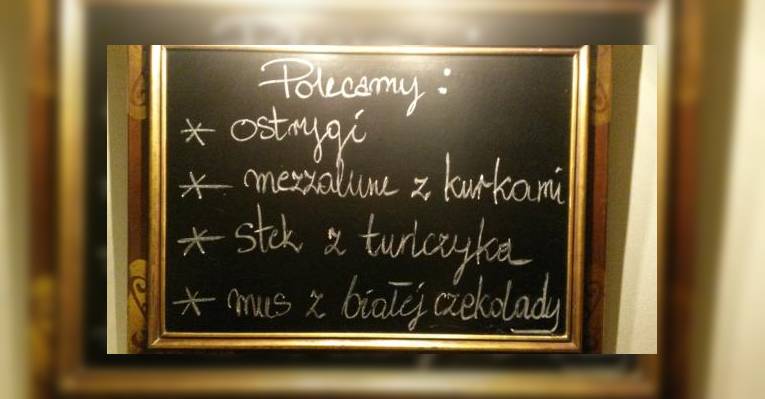 Polecamy:
* ostrygi
* mezzalune z kurkami
* stek z tuńczyka
* mus z białej czekolady